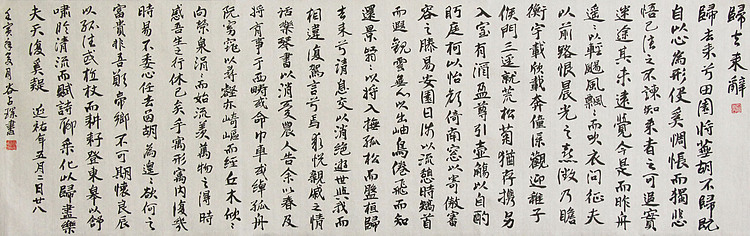 歸去來辭
歸去來兮田園將蕪胡不歸既
自以心為形役奚惆悵而獨悲
悟已往之不諫知來者之可追實
迷途其未遠覺今是而昨非舟
遙以輕颺風飄飄而吹衣問征夫
以前路恨晨光之熹微乃瞻
衡宇載欣載奔僮僕歡迎稚子
候門三逕就荒松菊猶存攜幼
入室有酒盈尊引壺觴以自酌
眄庭柯以怡顏倚南窓以寄傲審
容之易安園日涉以流憩時矯首
而遐觀雲無心以出岫鳥倦飛而知
還景翳翳以將入撫孤松而盤桓歸
去來兮請息交以絕遊世與我而
相違復駕言兮焉求悅親戚之情
話樂琴書以消憂農人告余以春及
將有事于西疇或命巾車或棹孤舟
既窈窕以尋壑亦崎嶇而經丘木欣欣
向榮泉涓涓而始流羨萬物之得時
感吾生之行休已矣乎寓形宇內復幾
時曷不委心任去留胡為遑遑欲何之
富貴非吾願帝鄉不可期懷良辰
以孤往或植杖而耕耔登東皋以舒
嘯臨清流而賦詩聊乘化以歸盡樂
夫天復奚疑 五月二日